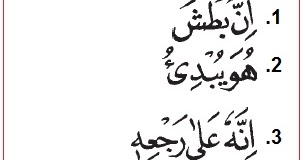 1. اِنَّ بَطْشَ
2. هُوَ يُبْدِئُ
3. اِنَّهٗ عَلٰى رَجْعِهٖ